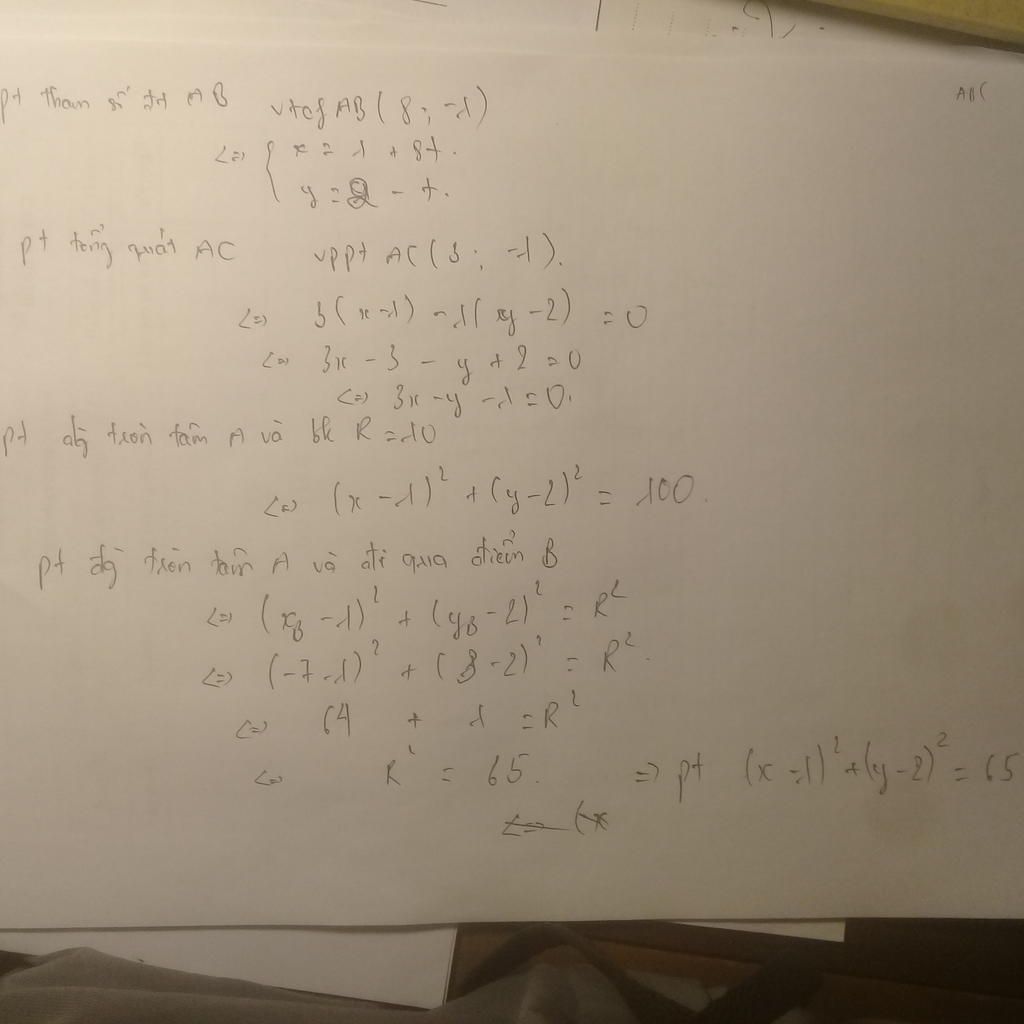 ABC
pt tham số đt AB vtcf AB(8; -1)
<=> { x = 1 + 8t.
y = 2 - t.
pt tổng quát AC vppt AC(3; -1).
<=> 3(x-1) - 1(y-2) = 0
<=> 3x - 3 - y + 2 = 0
<=> 3x - y - 1 = 0.
pt đg tròn tâm A và bk R = 10
<=> (x - 1)² + (y - 2)² = 100.
pt đg tròn tâm A và đi qua điểm B
<=> (x_B - 1)² + (y_B - 2)² = R²
<=> (-7 - 1)² + (3 - 2)² = R².
<=> 64 + 1 = R²
<=> R² = 65. => pt (x - 1)² + (y - 2)² = 65
<=> (x